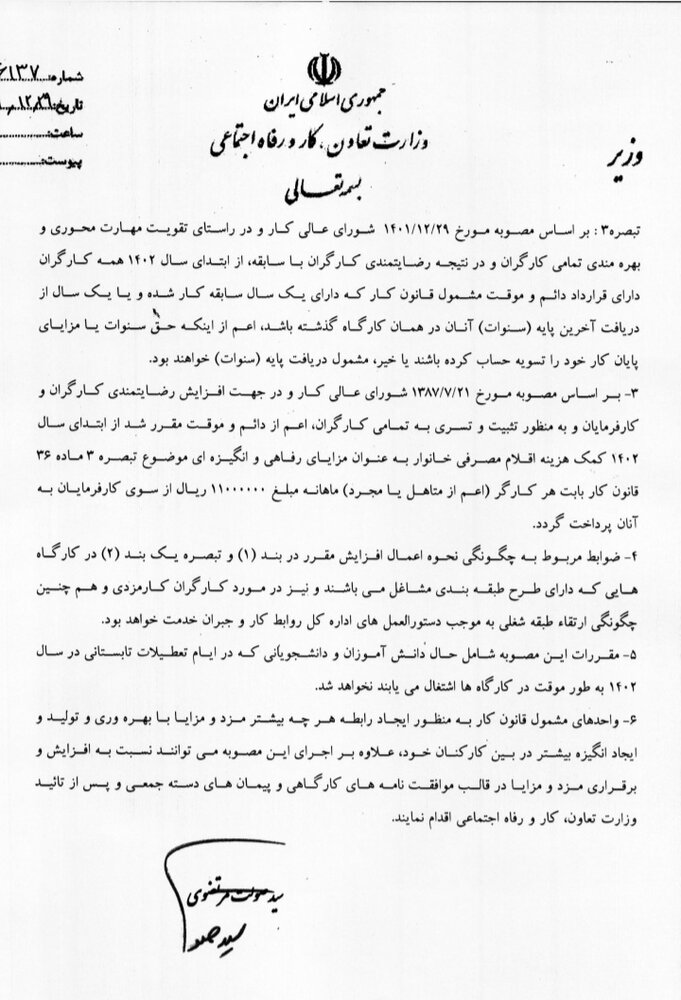 جمهوری اسلامی ایران
وزارت تعاون، کار و رفاه اجتماعی
وزیر
بسمه تعالی
شماره:
تاریخ:
ساعت:
پیوست:
تبصره۳: بر اساس مصوبه مورخ ۱۴۰۱/۱۲/۲۹ شورای عالی کار و در راستای تقویت مهارت محوری و
بهره مندی تمامی کارگران و در نتیجه رضایتمندی کارگران با سابقه، از ابتدای سال ۱۴۰۲ همه کارگران
دارای قرارداد دائم و موقت مشمول قانون کار که دارای یک سال سابقه کار شده و یا یک سال از
دریافت آخرین پایه (سنوات) آنان در همان کارگاه گذشته باشد، اعم از اینکه حق سنوات یا مزایای
پایان کار خود را تسویه حساب کرده باشند یا خیر، مشمول دریافت پایه (سنوات) خواهند بود.
۳- بر اساس مصوبه مورخ ۱۳۸۷/۷/۲۱ شورای عالی کار و در جهت افزایش رضایتمندی کارگران و
کارفرمایان و به منظور تثبیت و تسری به تمامی کارگران، اعم از دائم و موقت مقرر شد از ابتدای سال
۱۴۰۲ کمک هزینه اقلام مصرفی خانوار به عنوان مزایای رفاهی و انگیزه ای موضوع تبصره ۳ ماده ۳۶
قانون کار بابت هر کارگر (اعم از متاهل یا مجرد) ماهانه مبلغ ۱۱۰۰۰۰۰۰ ریال از سوی کارفرمایان به
آنان پرداخت گردد.
۴- ضوابط مربوط به چگونگی نحوه اعمال افزایش مقرر در بند (۱) و تبصره یک بند (۲) در کارگاه
هایی که دارای طرح طبقه بندی مشاغل می باشند و نیز در مورد کارگران کارمزدی و هم چنین
چگونگی ارتقاء طبقه شغلی به موجب دستورالعمل های اداره کل روابط کار و جبران خدمت خواهد بود.
۵- مقررات این مصوبه شامل حال دانش آموزان و دانشجویانی که در ایام تعطیلات تابستانی در سال
۱۴۰۲ به طور موقت در کارگاه ها اشتغال می یابند نخواهد شد.
۶- واحدهای مشمول قانون کار به منظور ایجاد رابطه هر چه بیشتر مزد و مزایا با بهره وری و تولید و
ایجاد انگیزه بیشتر در بین کارکنان خود، علاوه بر اجرای این مصوبه می توانند نسبت به افزایش و
برقراری مزد و مزایا در قالب موافقت نامه های کارگاهی و پیمان های دسته جمعی و پس از تائید
وزارت تعاون، کار و رفاه اجتماعی اقدام نمایند.
سید صولت مرتضوی